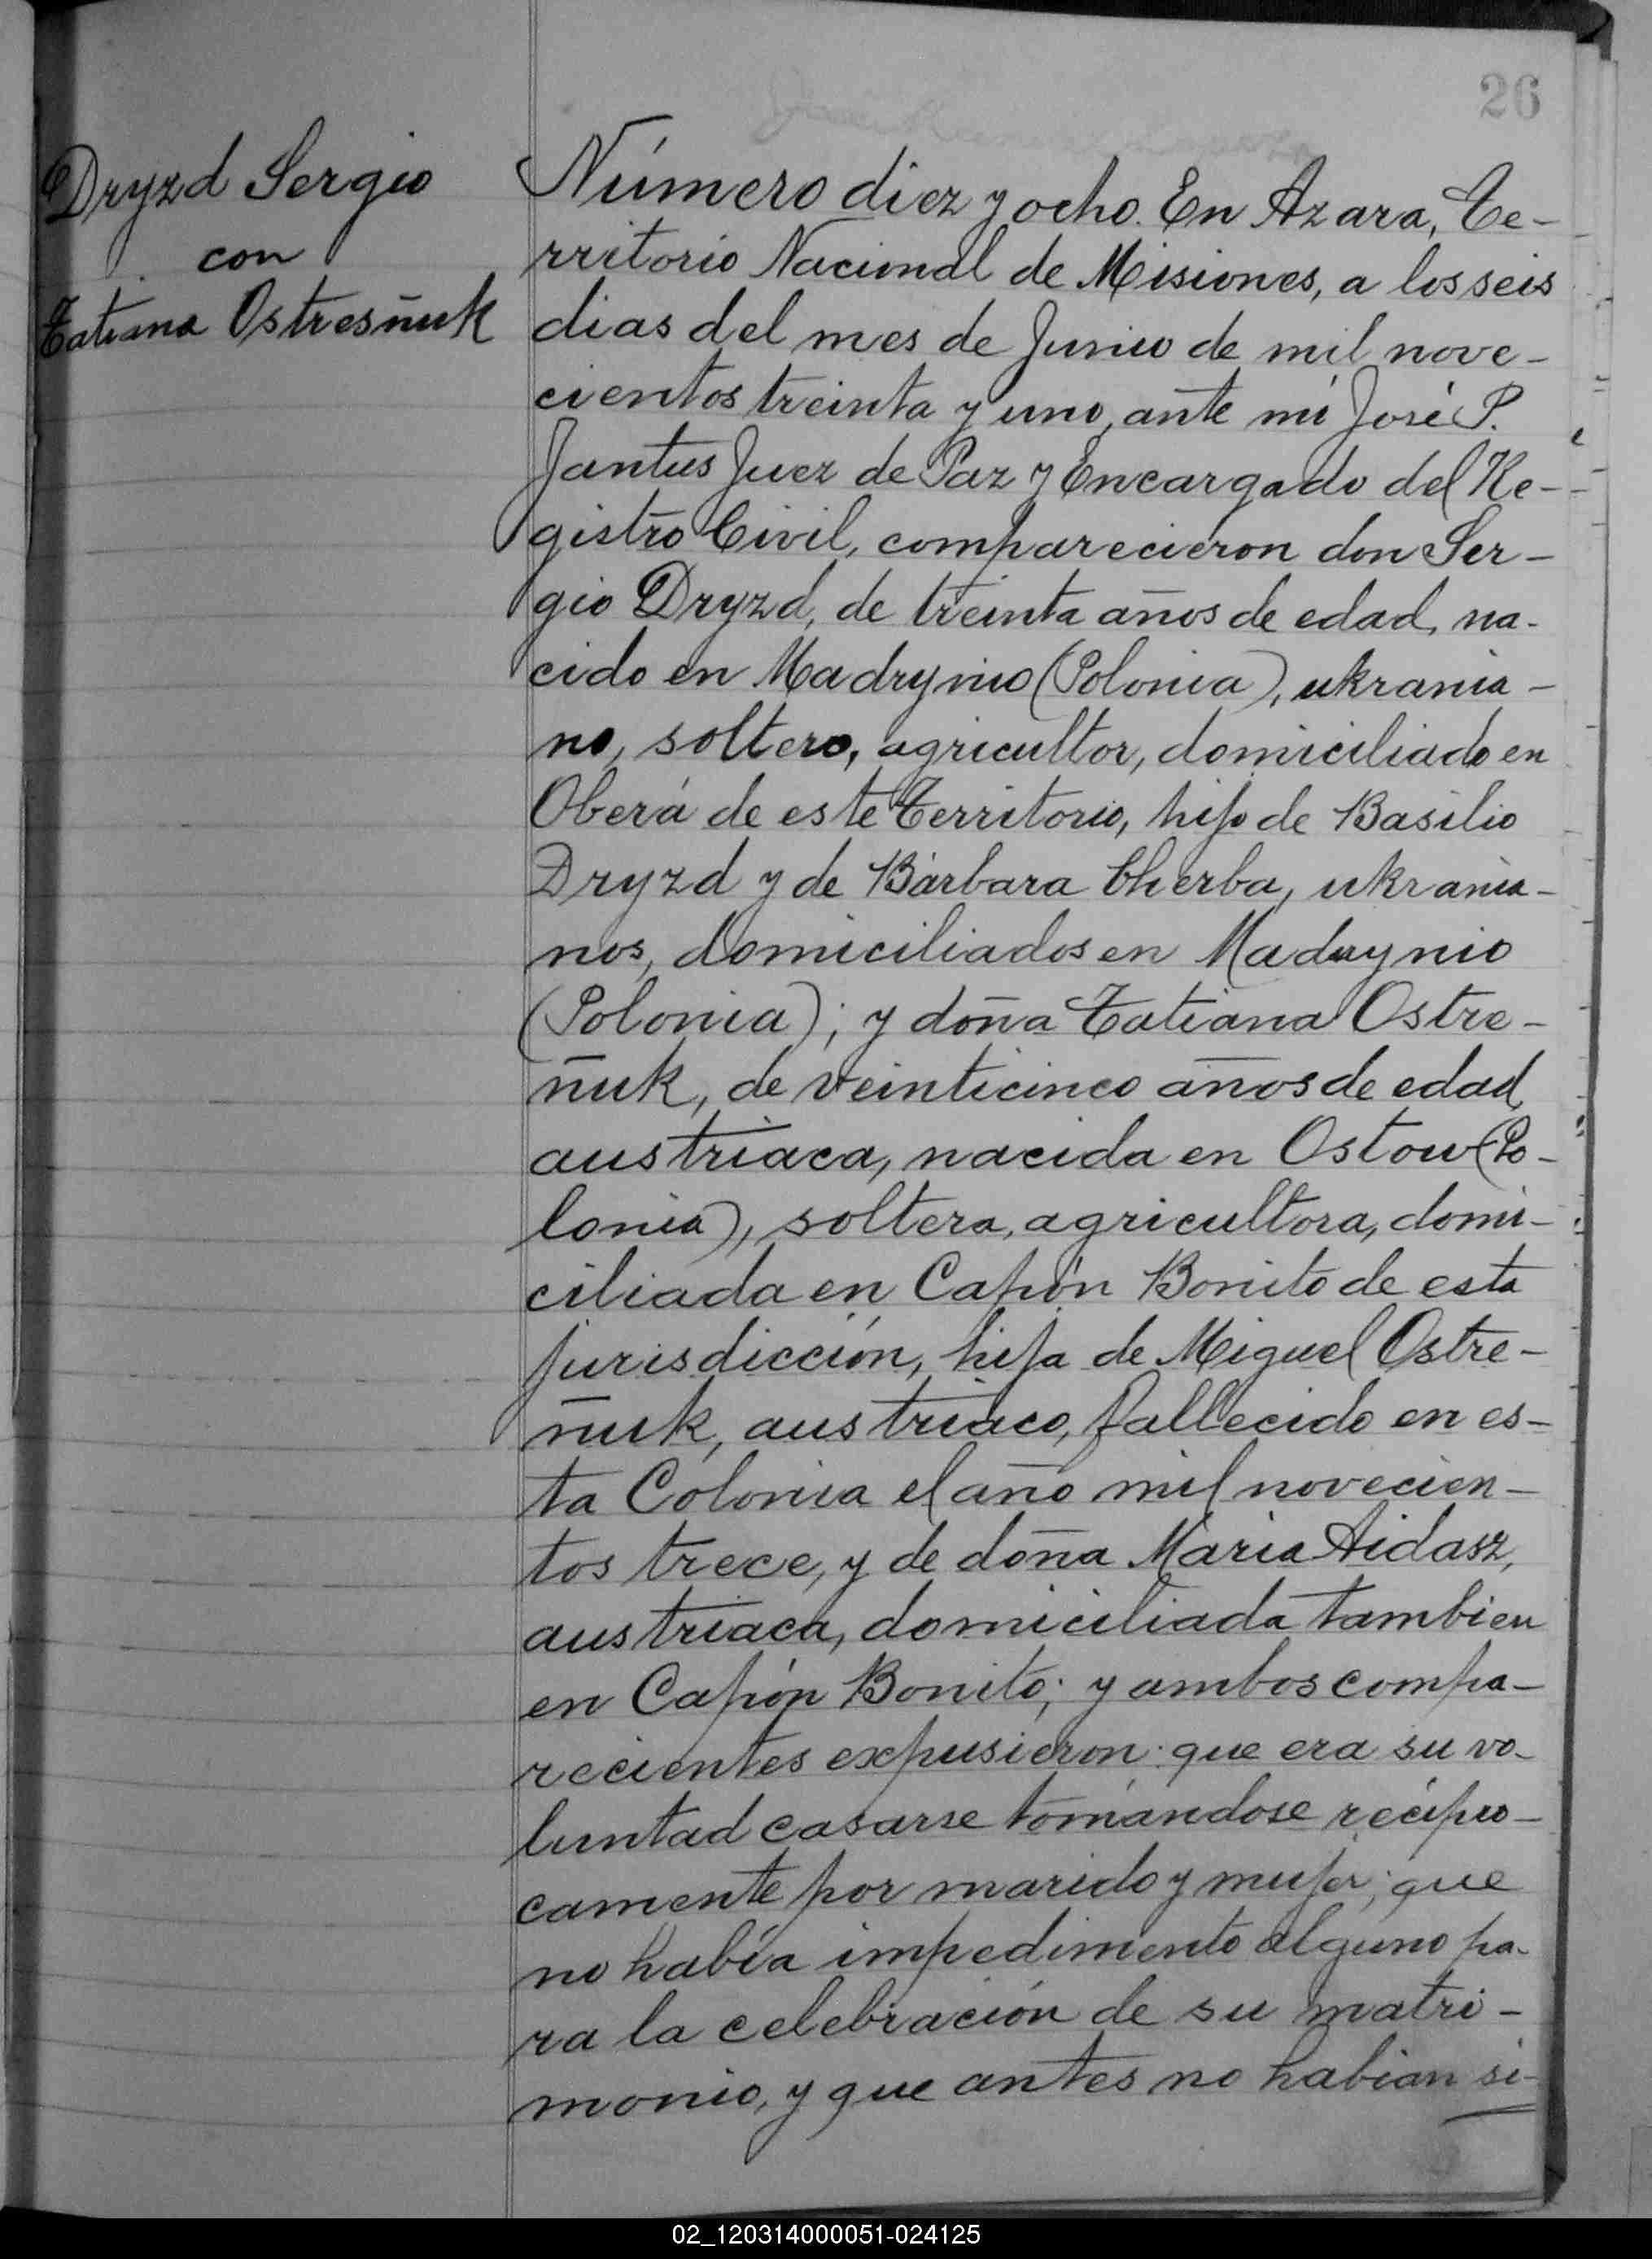 26
Dryzd Sergio
con
Tatiana Ostresñuk
Número diez y ocho. En Azara, Te-
rritorio Nacional de Misiones, a los seis
dias del mes de Junio de mil nove-
cientos treinta y uno, ante mí José P.
Jantus Juez de Paz y Encargado del Re-
gistro Civil, comparecieron don Ser-
gio Dryzd, de treinta años de edad, na-
cido en Madrynio (Polonia), ukrania-
no, soltero, agricultor, domiciliado en
Oberá de este Territorio, hijo de Basilio
Dryzd y de Bárbara Cherba, ukrania-
nos, domiciliados en Madrynio
(Polonia); y doña Tatiana Ostre-
ñuk, de veinticinco años de edad,
austriaca, nacida en Ostow (Po-
lonia), soltera, agricultora, domi-
ciliada en Capón Bonito de esta
jurisdicción, hija de Miguel Ostre-
ñuk, austriaco, fallecido en es-
ta Colonia el año mil novecien-
tos trece, y de doña Maria Aidasz,
austriaca, domiciliada tambien
en Capón Bonito; y ambos compa-
recientes expusieron: que era su vo-
luntad casarse tomándose recípro-
camente por marido y mujer; que
no había impedimento alguno pa-
ra la celebración de su matri-
monio, y que antes no habian si-
02_120314000051-024125